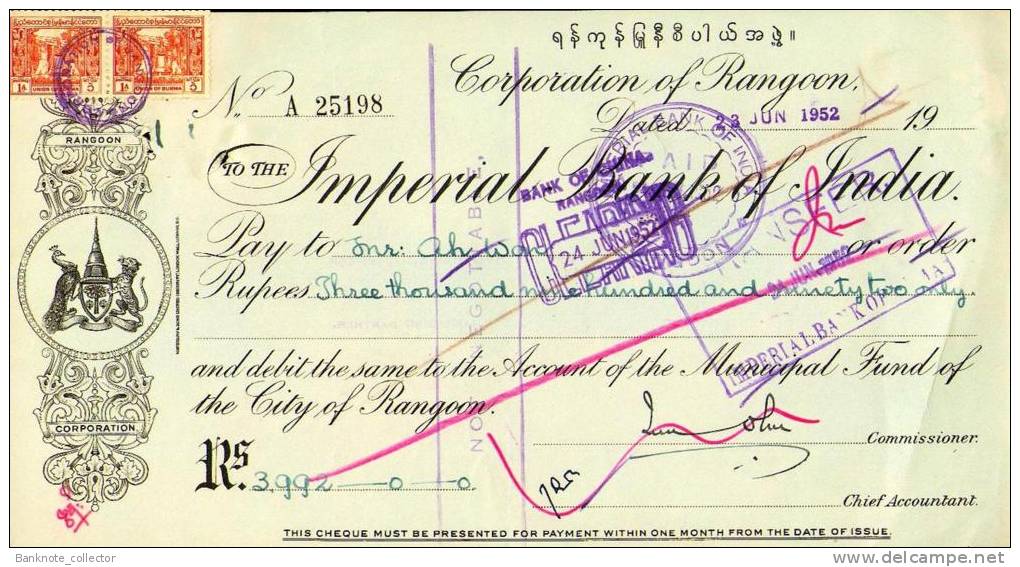 ပြည်ထောင်စုမြန်မာနိုင်ငံတော် ပြည်ထောင်စုမြန်မာနိုင်ငံတော်
1A UNION OF BURMA 1A UNION OF BURMA
ရန်ကုန်မြူနီစီပါယ်အဖွဲ့။
Corporation of Rangoon.
No A 25198
Dated 23 JUN 1952 19
RANGOON
TO THE Imperial Bank of India.
BANK OF CHINA
RANGOON
24 JUN 1952
PAID
Pay to Mr: Ah Won or order
Rupees Three thousand nine hundred and ninety two only
IMPERIAL BANK OF
NOT NEGOTIABLE
and debit the same to the Account of the Municipal Fund of
the City of Rangoon.
CORPORATION
Commissioner.
Rs 3,992-0-0
Chief Accountant.
THIS CHEQUE MUST BE PRESENTED FOR PAYMENT WITHIN ONE MONTH FROM THE DATE OF ISSUE.
Banknote_collector
delcampe.net